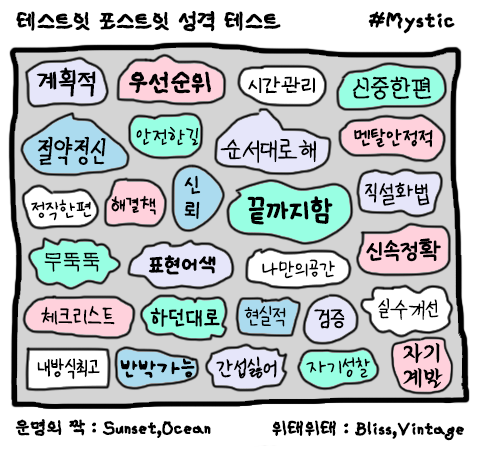 테스트잇 포스트잇 성격 테스트 #Mystic
계획적 우선순위 시간관리 신중한편
절약정신 안전한길 순서대로 해 멘탈안정적
정직한편 해결책 신뢰 끝까지함 직설화법
무뚝뚝 표현어색 나만의공간 신속정확
체크리스트 하던대로 현실적 검증 실수개선
내방식최고 반박가능 간섭싫어 자기성찰 자기계발
운명의 짝 : Sunset,Ocean 위태위태 : Bliss,Vintage